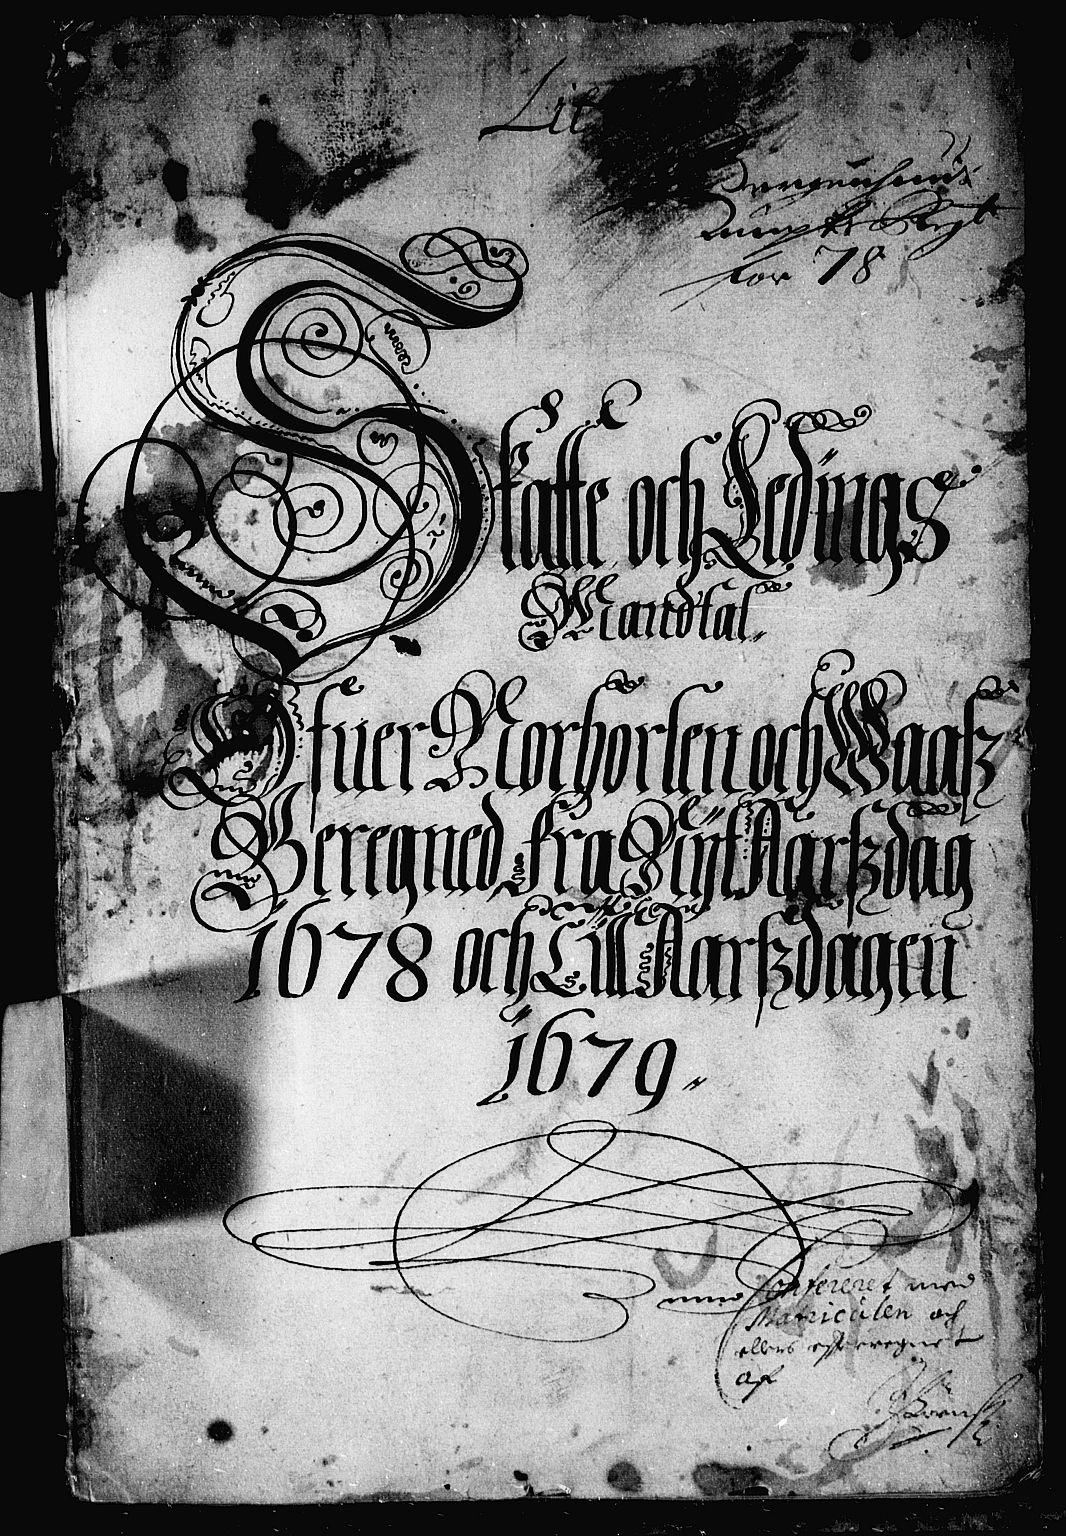 Lit
for 78
Skatte och Ledings
Mandtal.
Ofuer Norhorlen och Waasz
Beregned fra Nÿt Aarszdag
1678 och Till Aarszdagen
1679
Confereret med
Matriculen och
ellers efterregnet
af